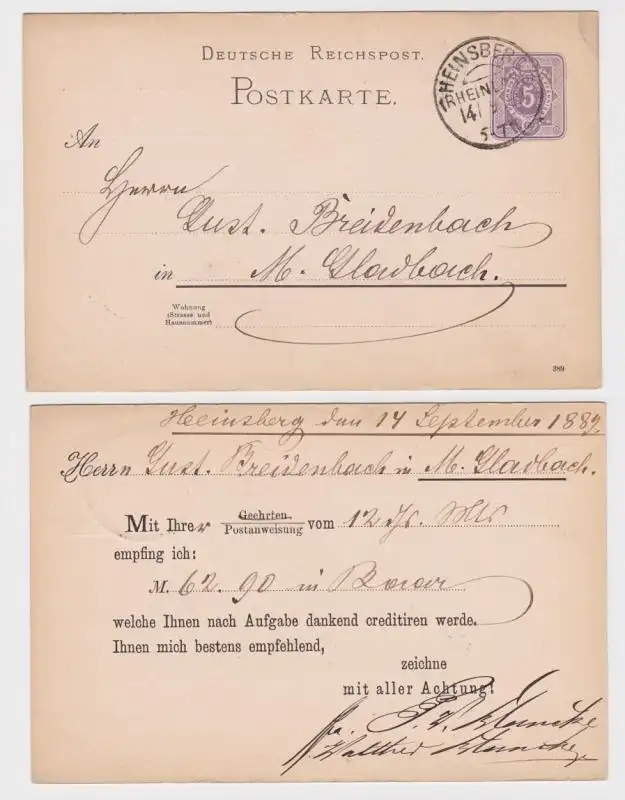 DEUTSCHE REICHSPOST.
POSTKARTE.
HEINSBERG
(RHEINL
14/
5-7
5
An
Herrn
Gust. Breidenbach
in M. Gladbach.
Wohnung
(Strasse und
Hausnummer)
389
Heinsberg den 14 September 1889.
Herrn Gust. Breidenbach in M. Gladbach.
Mit Ihrer Geehrten / Postanweisung vom 12 ds. Mts
empfing ich:
M. 62.90 in Baar
welche Ihnen nach Aufgabe dankend creditiren werde.
Ihnen mich bestens empfehlend,
zeichne
mit aller Achtung!
Walther